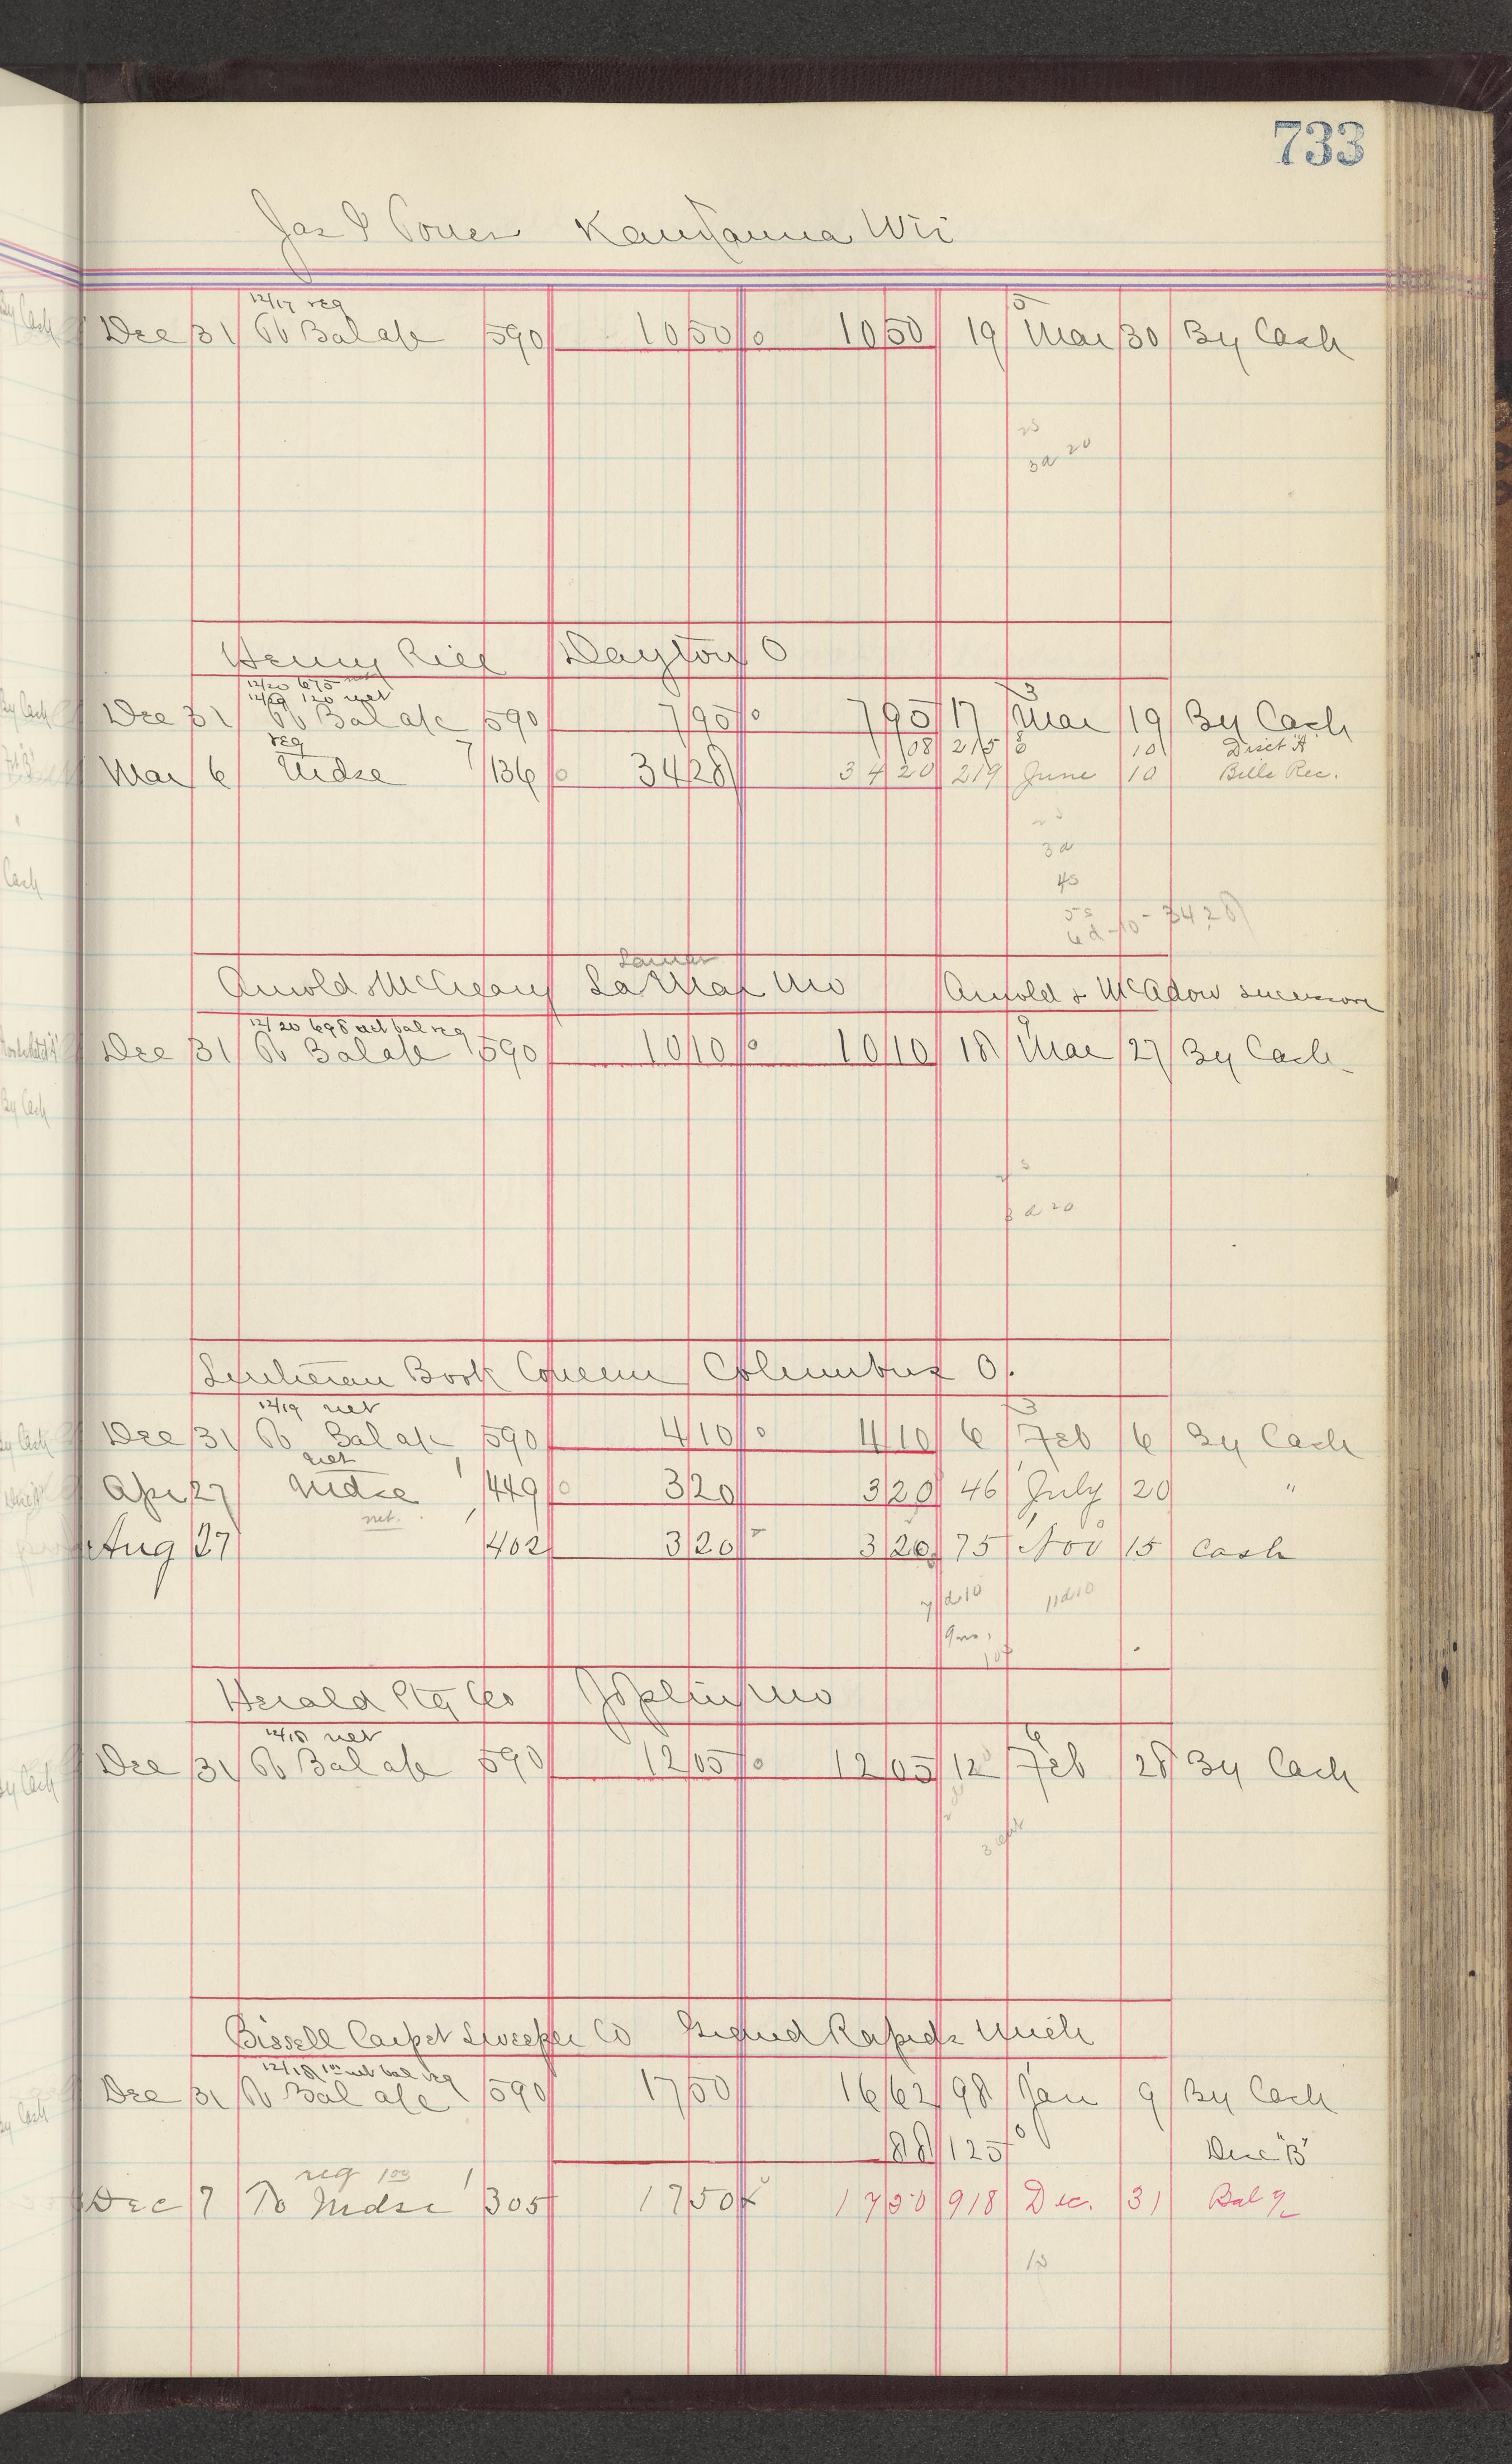 733
Kaukauna Wis
12/17 reg 5
Dec 31 To Bal a/c 590 10 50 0 10 50 19 Mar 30 By Cash
2s
3d 20
Henry Dayton O
12/20 675 net
12/29 120 net 3
Dec 31 To Bal a/c 590 7 95 0 7 95 17 Mar 19 By Cash
reg 7 08 215 0 10 Disct "A"
Mar 6 Mdse 136 0 34 28 34 20 219 June 10 Bills Rec.
3d
4s
5s
6d-10- 34.28
Lamar
Arnold & McCreary LaMar Mo Arnold & McAdow successors
12/20 698 net bal reg 9
Dec 31 To Bal a/c 590 10 10 0 10 10 18 Mar 27 By Cash
3d 20
Lutheran Book Concern Columbus O.
12/19 net 3
Dec 31 To Bal a/c 590 4 10 0 4 10 6 Feb 6 By Cash
net 1
Apr 27 Mdse 449 0 3 20 3 20 46 July 20 "
net.
Aug 27 402 3 20 3 20 75 Nov 15 Cash
7d10 11d10
Herald Ptg Co Joplin Mo
12/18 net 6
Dec 31 To Bal a/c 590 12 05 0 12 05 12 Feb 28 By Cash
Bissell Carpet Sweeper Co Grand Rapids Mich
12/18 100 net bal reg
Dec 31 To Bal a/c 590 17 50 16 62 98 Jan 9 By Cash
88 125 0 Disc "B"
reg 100 1
Dec 7 To Mdse 305 17 50 17 50 918 Dec. 31 Bal a/c